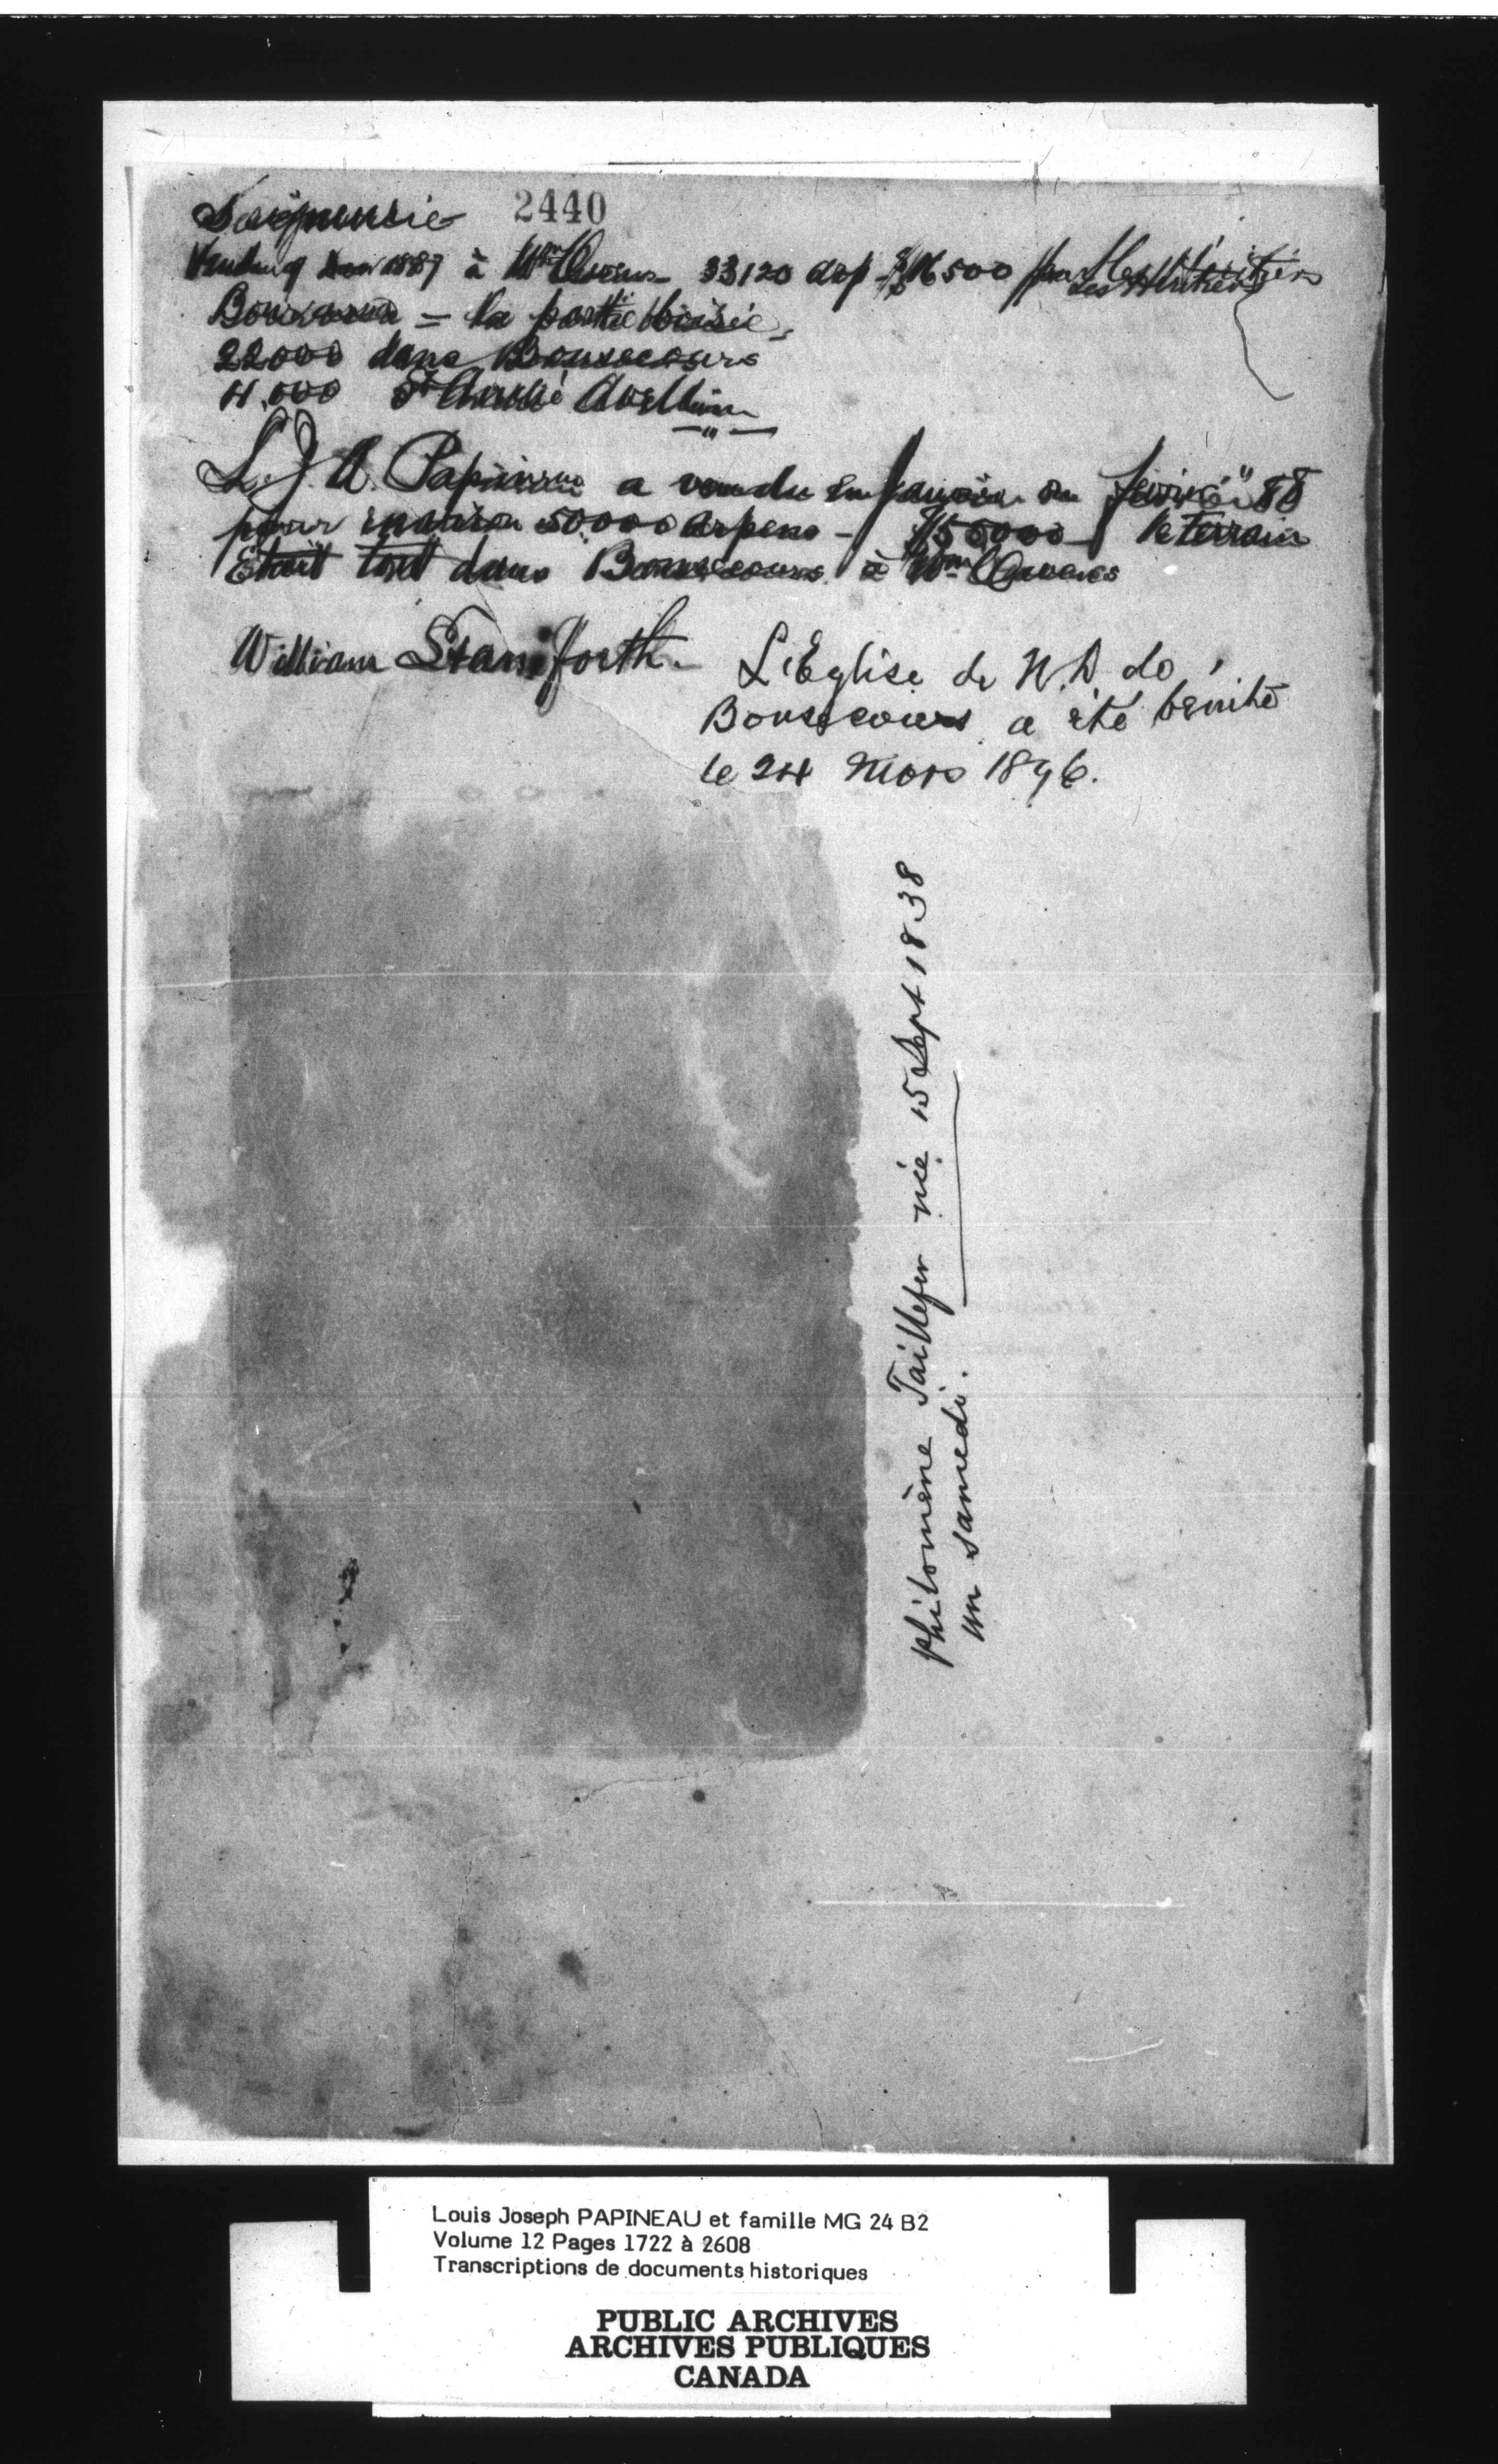 Seigneurie 2440
Vendu 9 Dec 1887 à Wm Owens 33120 arp - $16500 par les Héritiers
= la partie boisée,
22000 dans Bonsecours
4.000 St André Avellin
L. J. A. Papineau a vendu en Janvier ou Février 88
pour environ 50000 Arpens - le terrain
Etait tout dans Bonsecours à Wm Owens
William Staniforth.
L'Eglise de N. D. de
Bonsecours a été bénite
le 24 Mars 1896.
Philomène Taillefer née 15 Sept 1838
un samedi.
Louis Joseph PAPINEAU et famille MG 24 B2
Volume 12 Pages 1722 à 2608
Transcriptions de documents historiques
PUBLIC ARCHIVES
ARCHIVES PUBLIQUES
CANADA